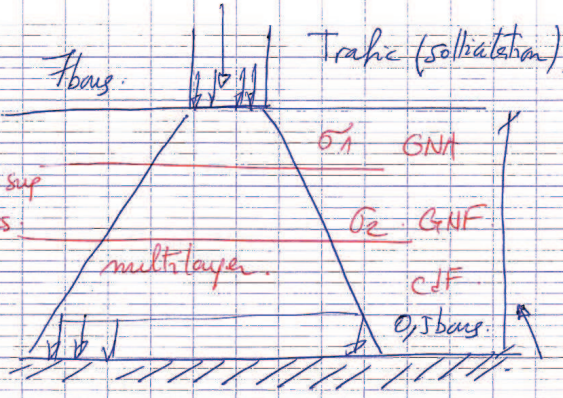 Trafic (sollicitation)
7bars.
σ1 GNA
sup
s.
σ2 GNF
multilayer.
cdF
0,5bars.